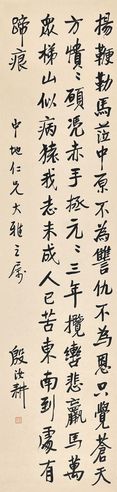 揚鞭勒馬莅中原不為讐仇不為恩只覺蒼天
方憒憒願憑赤手拯元元三年攬轡悲羸馬萬
眾梯山似病猿我志未成人已苦東南到處有
啼痕
中地仁兄大雅之属
殷汝耕